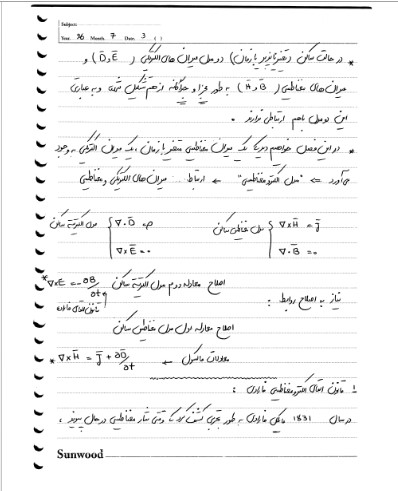 Subject:
Year. 96 Month. 7 Date. 3 ( )
* در حالت ساکن (تغییرناپذیر با زمان) در مدل میدان های الکتریکی (D̅ و E̅) و
میدان های مغناطیسی (B̅ و H̅) به طور مجزا و جداگانه از هم تشکیل شدن و به عبارتی
این دو مدل باهم ارتباطی ندارند.
* در این فصل خواهیم دید که یک میدان مغناطیسی متغیر با زمان، یک میدان الکتریکی به وجود
می آورد ⇐ "مدل الکترومغناطیسی" ← ارتباط ... میدان های الکتریکی و مغناطیسی
مدل الکتریسیته ساکن { ∇·D̅ = ρ مدل مغناطیس ساکن { ∇×H̅ = J̅
∇×E̅ = 0 ∇·B̅ = 0
* ∇×E = -∂B/∂t اصلاح معادله دوم مدل الکتریسیته ساکن
قانون القای فارادی
نیاز به اصلاح روابط :
اصلاح معادله اول مدل مغناطیس ساکن
* ∇×H̅ = J̅ + ∂D̅/∂t ← معادلات ماکسول
1 قانون القای الکترومغناطیسی فارادی :
در سال 1831 مایکل فارادی به طور تجربی کشف کرد که وقتی شار مغناطیسی در حال پیوند ،
Sunwood